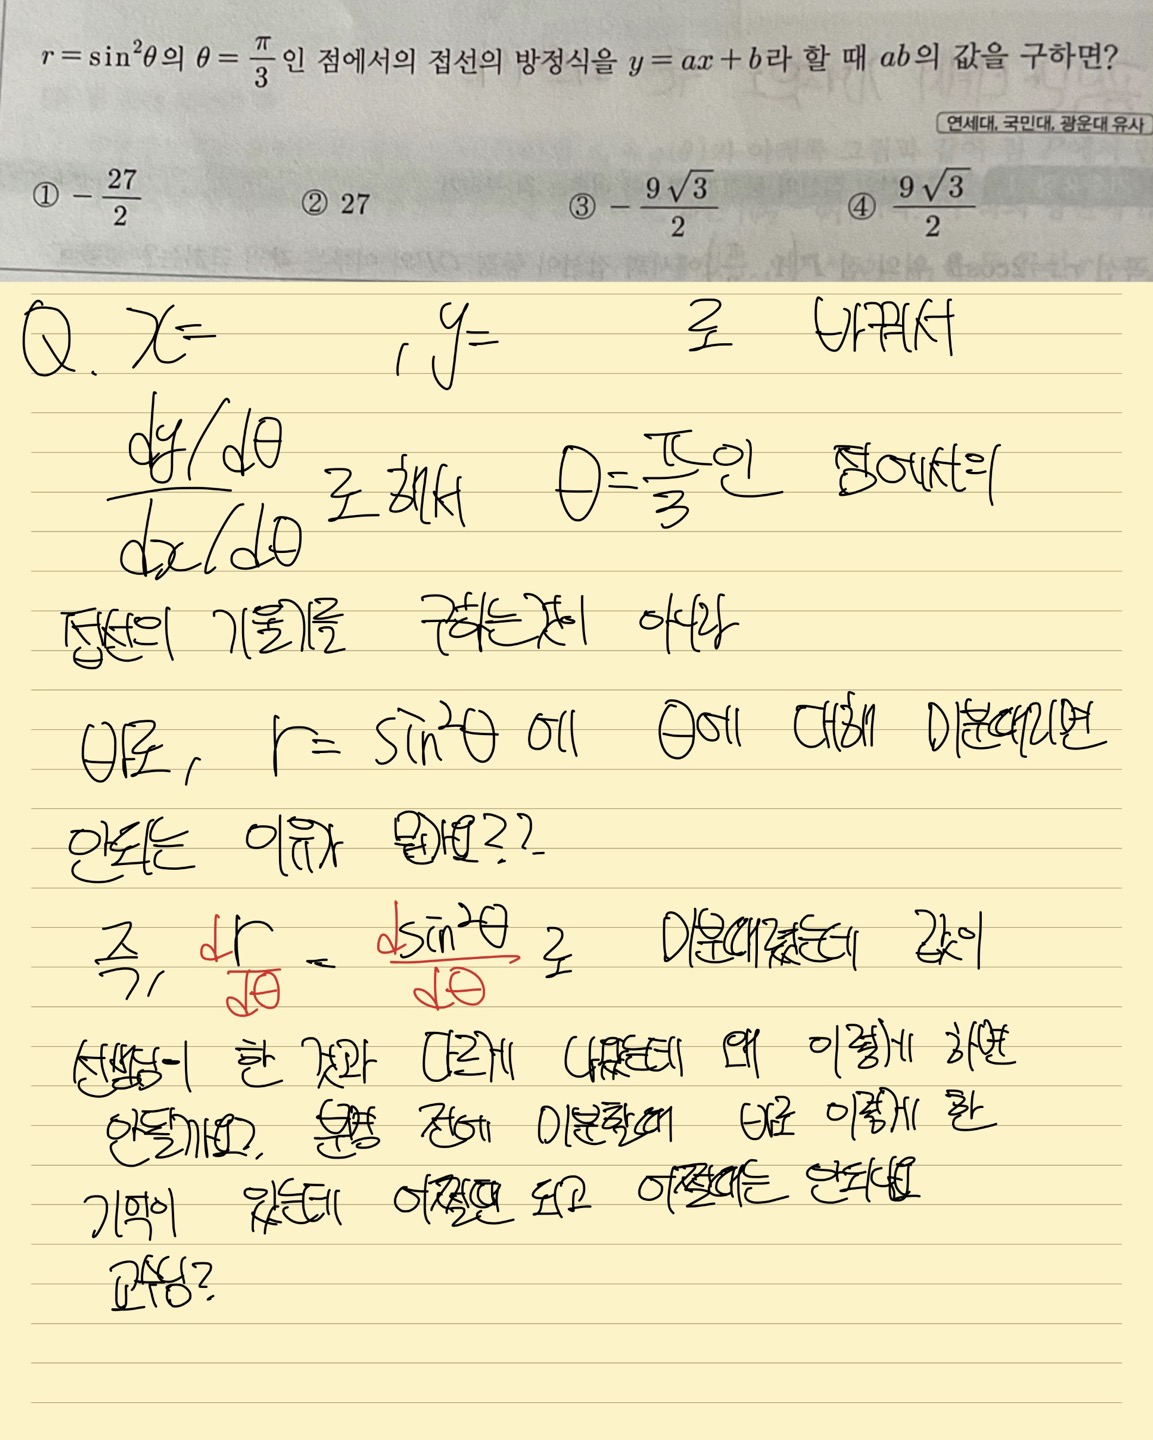 r = sin²θ의 θ = π/3 인 점에서의 접선의 방정식을 y = ax + b라 할 때 ab의 값을 구하면?
연세대, 국민대, 광운대 유사
① -27/2 ② 27 ③ -9√3/2 ④ 9√3/2
Q. x= , y= 로 바꿔서
(dy/dθ)/(dx/dθ) 로 해서 θ=π/3인 점에서의
접선의 기울기를 구하는것이 아니라
바로, r= sin²θ 에 θ에 대해 미분때리면
안되는 이유가 뭘까요??
즉, dr/dθ = dsin²θ/dθ 로 미분때렸는데 값이
선생님이 한 것과 다르게 나왔는데 왜 이렇게 하면
안될까요?, 분명 전에 미분할때 바로 이렇게 한
기억이 있는데 어쩔땐 되고 어쩔때는 안되나요
교수님?